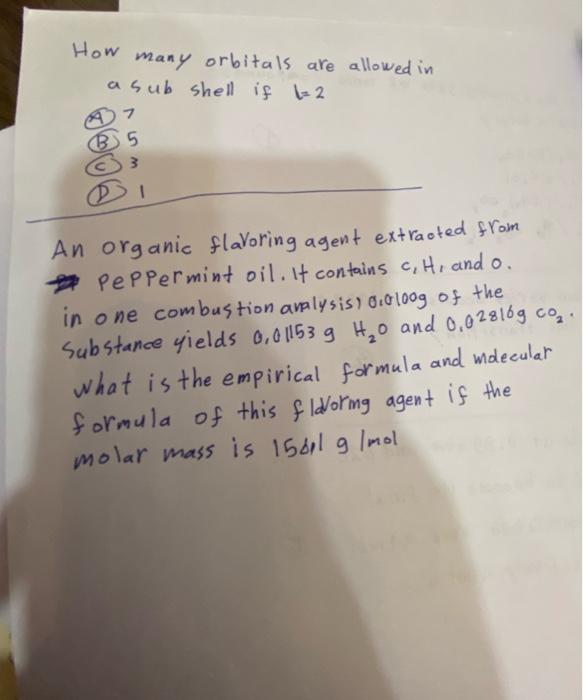 How many orbitals are allowed in
a sub shell if l=2
(A) 7
(B) 5
(C) 3
(D) 1
An organic flavoring agent extracted from
peppermint oil. It contains C, H, and O.
in one combustion analysis, 0.0100g of the
substance yields 0.01153 g H₂O and 0.02816g CO₂.
what is the empirical formula and molecular
formula of this flavoring agent if the
molar mass is 156.1 g/mol